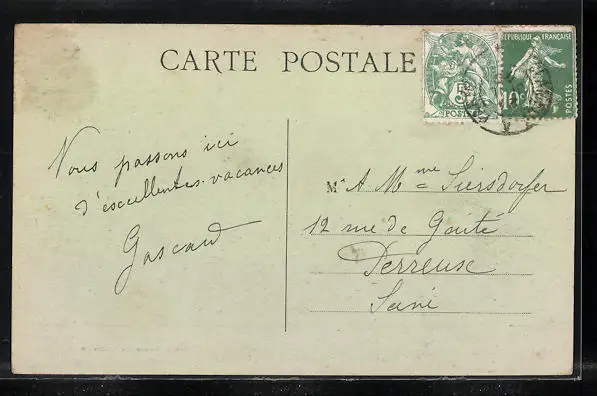 CARTE POSTALE
5c
POSTES
REPUBLIQUE FRANÇAISE
10c
POSTES
Nous passons ici
d'excellentes vacances
Gascard
Mr & Mme Siersdorfer
12 rue de Gaité
Perreuse